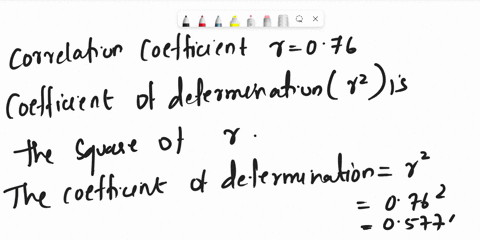 Correlation Coefficient r=0.76
Coefficient of determination (r²) is
the square of r.
The coefficient of determination = r²
= 0.76²
= 0.577